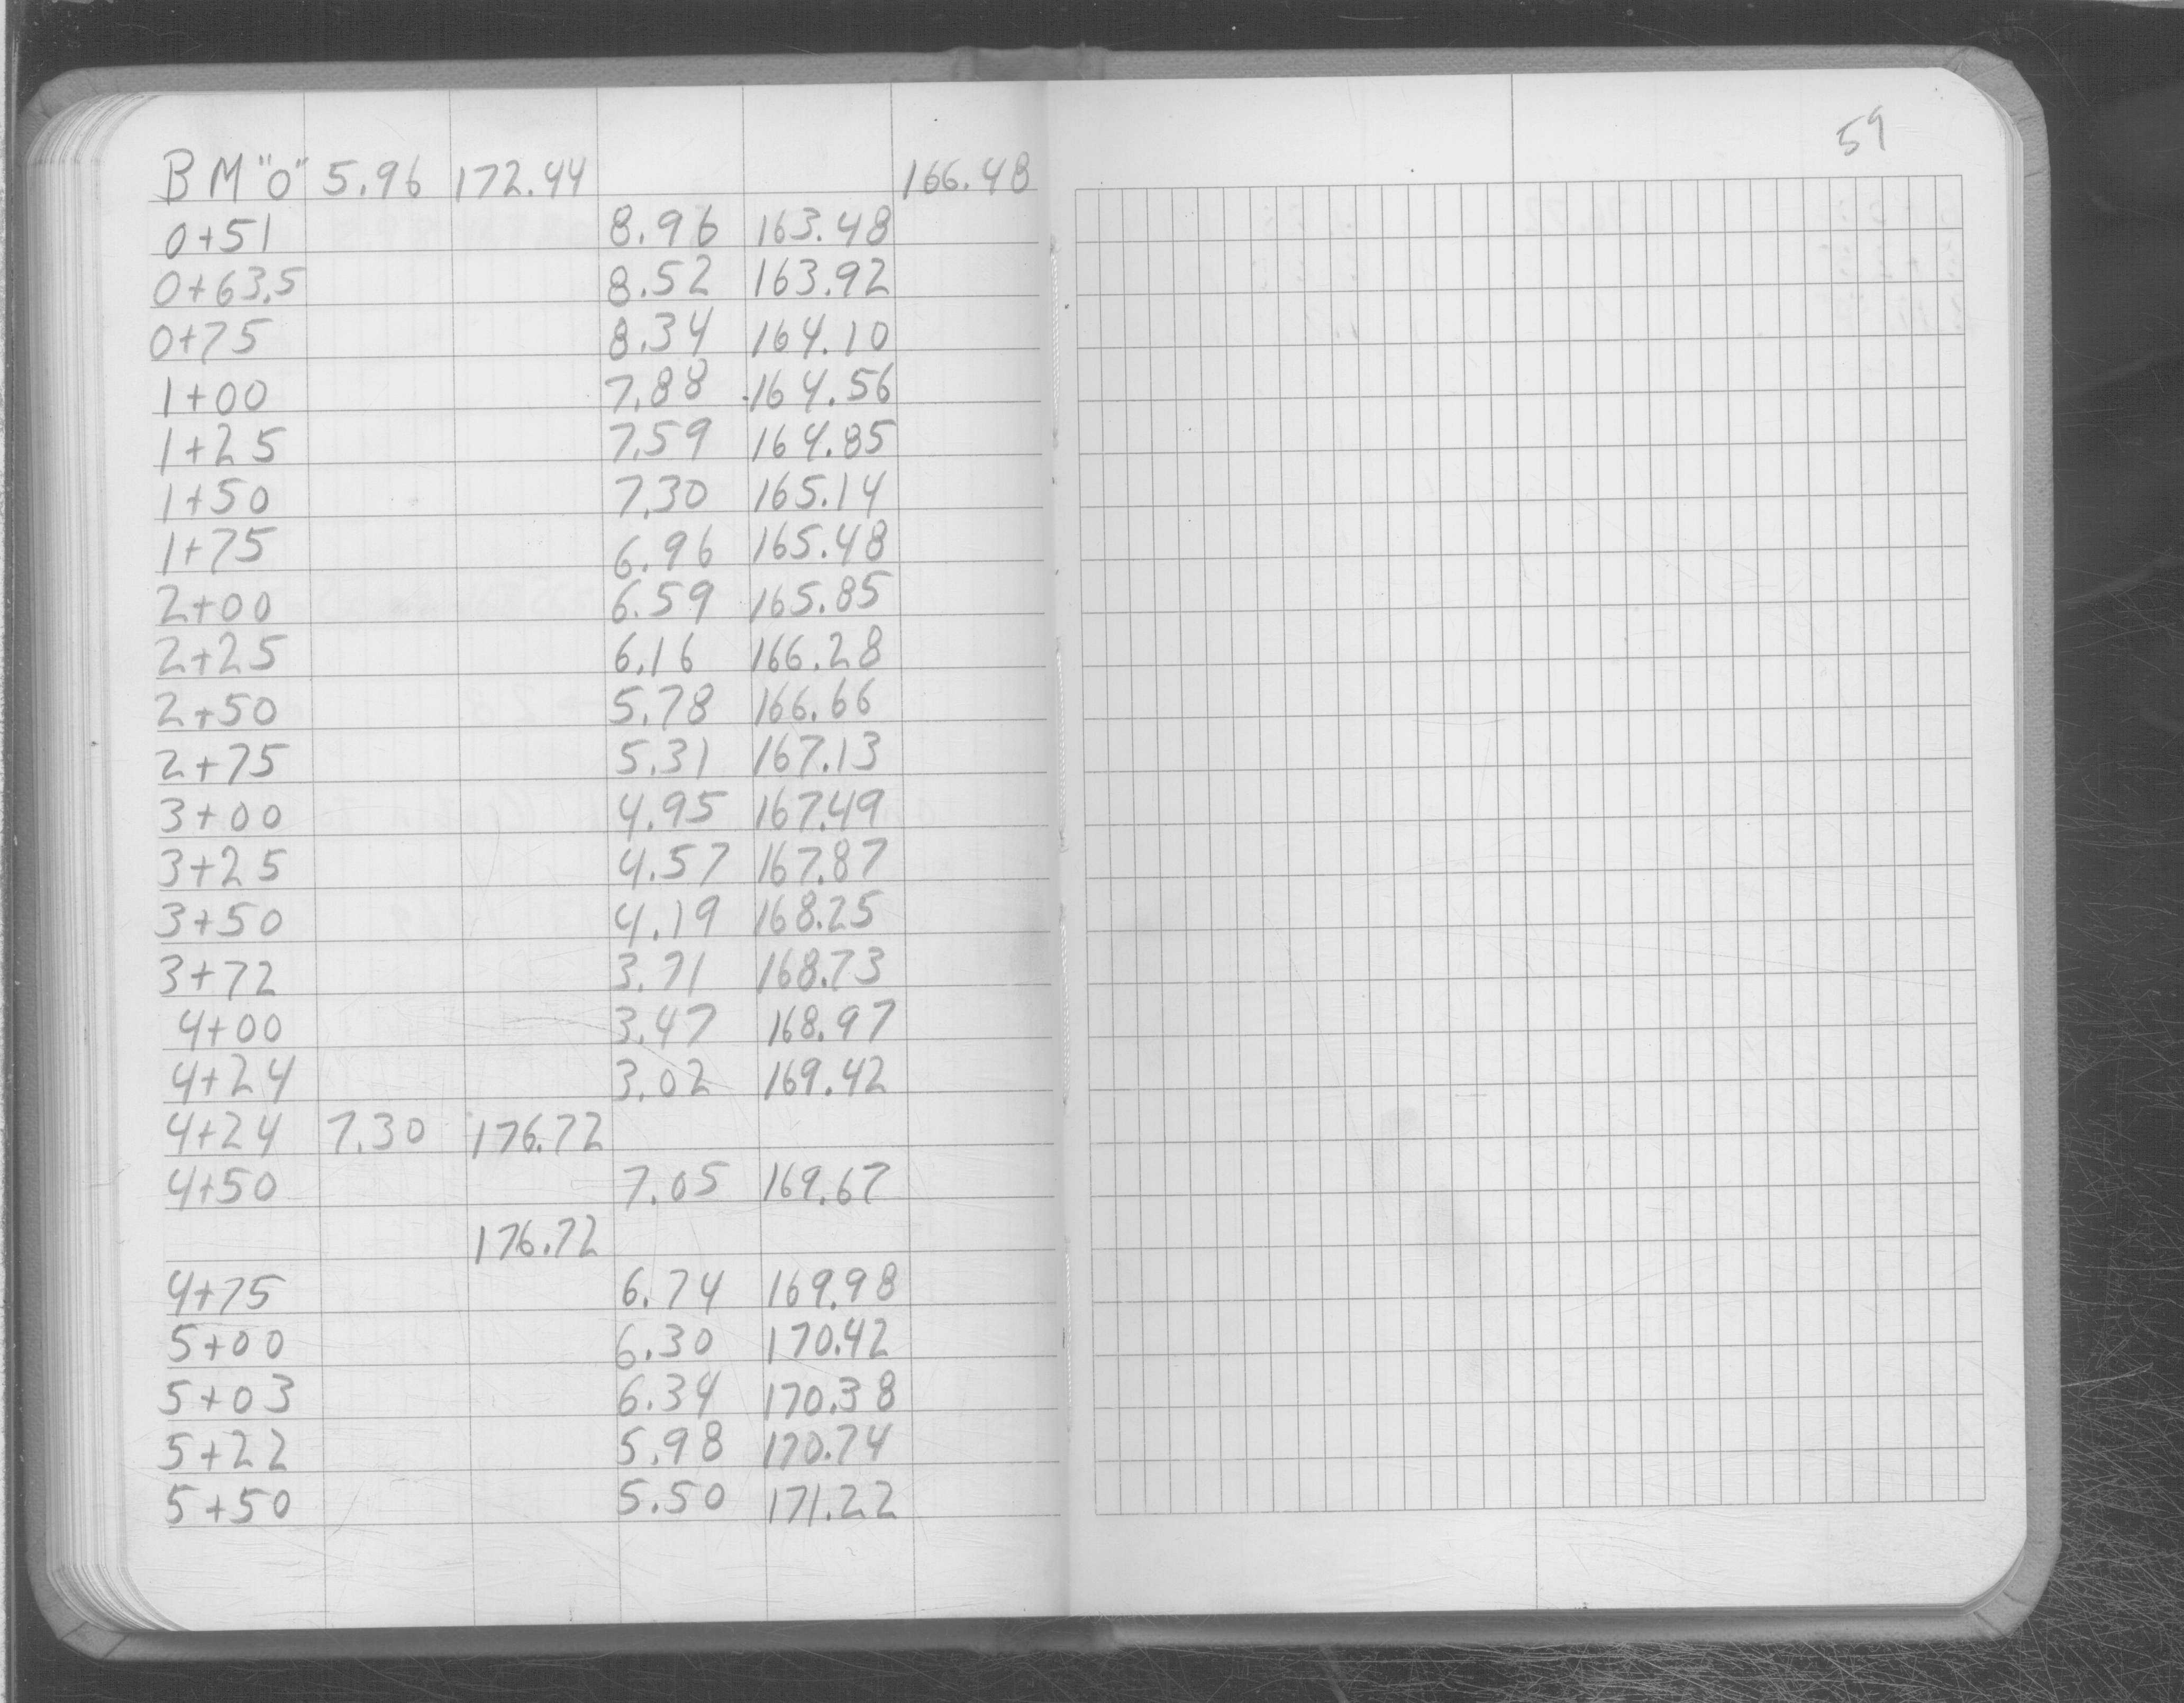 59
BM "0" 5.96 172.44 166.48
0+51 8.96 163.48
0+63.5 8.52 163.92
0+75 8.34 164.10
1+00 7.88 164.56
1+25 7.59 164.85
1+50 7.30 165.14
1+75 6.96 165.48
2+00 6.59 165.85
2+25 6.16 166.28
2+50 5.78 166.66
2+75 5.31 167.13
3+00 4.95 167.49
3+25 4.57 167.87
3+50 4.19 168.25
3+72 3.71 168.73
4+00 3.47 168.97
4+24 3.02 169.42
4+24 7.30 176.72
4+50 7.05 169.67
176.72
4+75 6.74 169.98
5+00 6.30 170.42
5+03 6.34 170.38
5+22 5.98 170.74
5+50 5.50 171.22